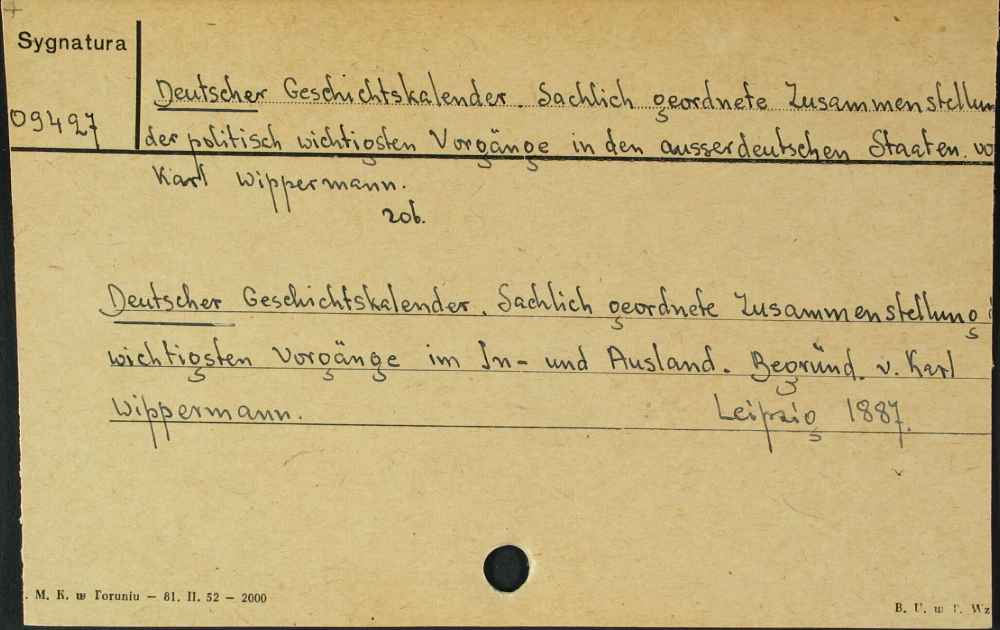 Sygnatura
09427
Deutscher Geschichtskalender. Sachlich geordnete Zusammenstellun
der politisch wichtigsten Vorgänge in den ausserdeutschen Staaten. vo
Karl Wippermann.
zob.
Deutscher Geschichtskalender. Sachlich geordnete Zusammenstellung
wichtigsten Vorgänge im In- und Ausland. Begründ. v. Karl
Wippermann. Leipzig 1887.
. M. K. w Toruniu — 81. II. 52 — 2000
B. U. w T. Wz